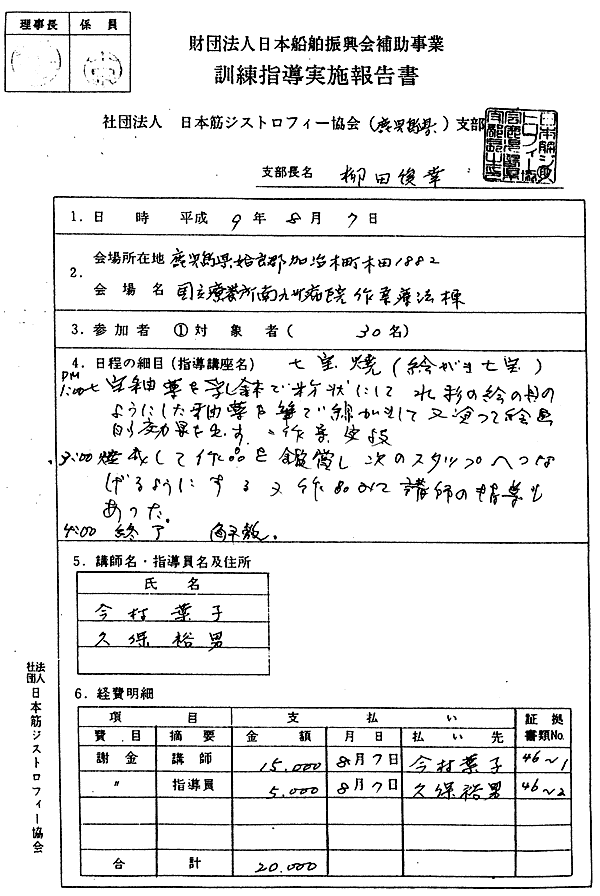 理事長 係員
財団法人日本船舶振興会補助事業
訓練指導実施報告書
社団法人 日本筋ジストロフィー協会（鹿児島県）支部
支部長名 柳田俊幸
1．日 時 平成 9 年 8 月 7 日
2．
会場所在地 鹿児島県姶良郡加治木町木田1882
会場名 国立療養所南九州病院 作業療法棟
3．参加者 ①対象者（ 30名）
4．日程の細目（指導講座名） 七宝焼（絵がき七宝）
PM
1:00 七宝釉薬を乳鉢で粉状にして 水彩の絵の具の
ようにした釉薬を筆で線がきして 又塗って絵画
的効果を出す。作業実技
3:00 焼成して作品を鑑賞し次のステップへつな
げるようにする 又 講師の指導も
あった。
4:00 終了 解散。
5．講師名・指導員名及住所
氏名
今村葉子
久保裕男
6．経費明細
項目 支払い 証拠書類No.
費目 摘要 金額 月日 払い先
謝金 講師 15.000 8月7日 今村葉子 46〜1
〃 指導員 5.000 8月7日 久保裕男 46〜2
合計 20.000
社団法人 日本筋ジストロフィー協会